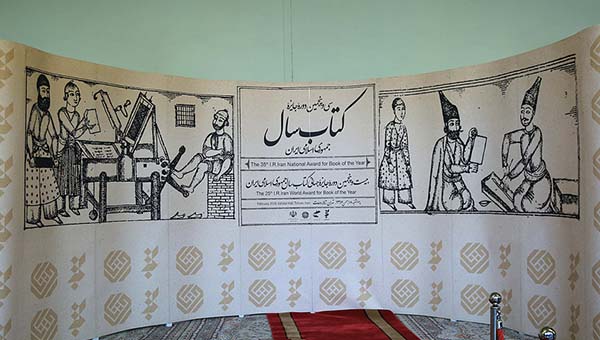 سی و پنجمین دوره جایزه
کتاب سال
جمهوری اسلامی ایران
The 35th I.R.Iran National Award for Book of the Year
بیست و پنجمین دوره جایزه جهانی کتاب سال جمهوری اسلامی ایران
The 25th I.R.Iran World Award for Book of the Year